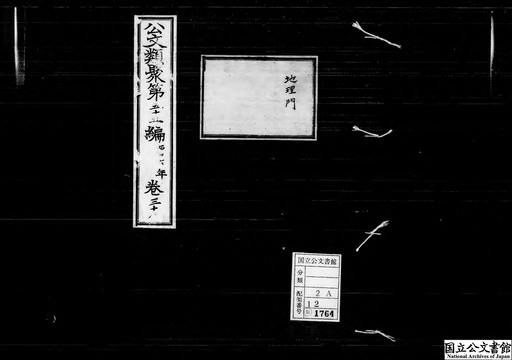 公文類聚第五十五編昭和六年卷三十
地理門
国立公文書館
分類
配架番号
2A
12
類1764
国立公文書館
National Archives of Japan